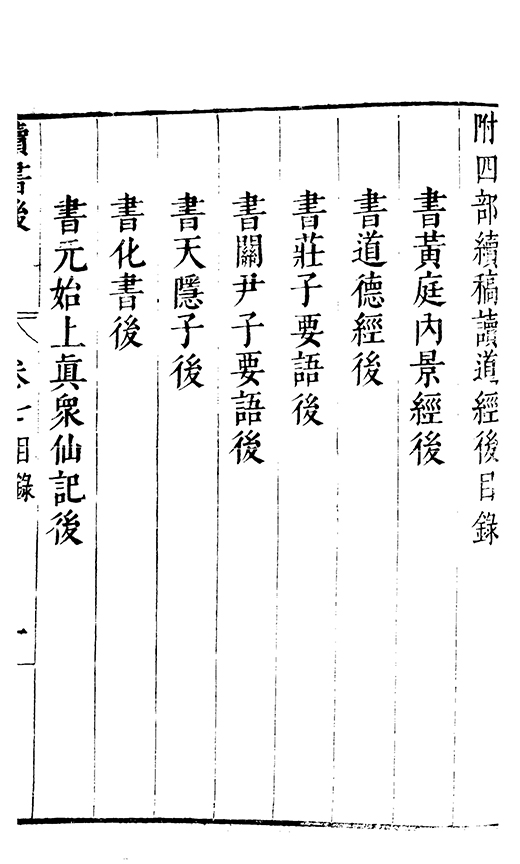 附四部續稿讀道經後目錄
書黃庭內景經後
書道德經後
書莊子要語後
書關尹子要語後
書天隱子後
書化書後
書元始上眞衆仙記後
讀書後
卷七目錄
一